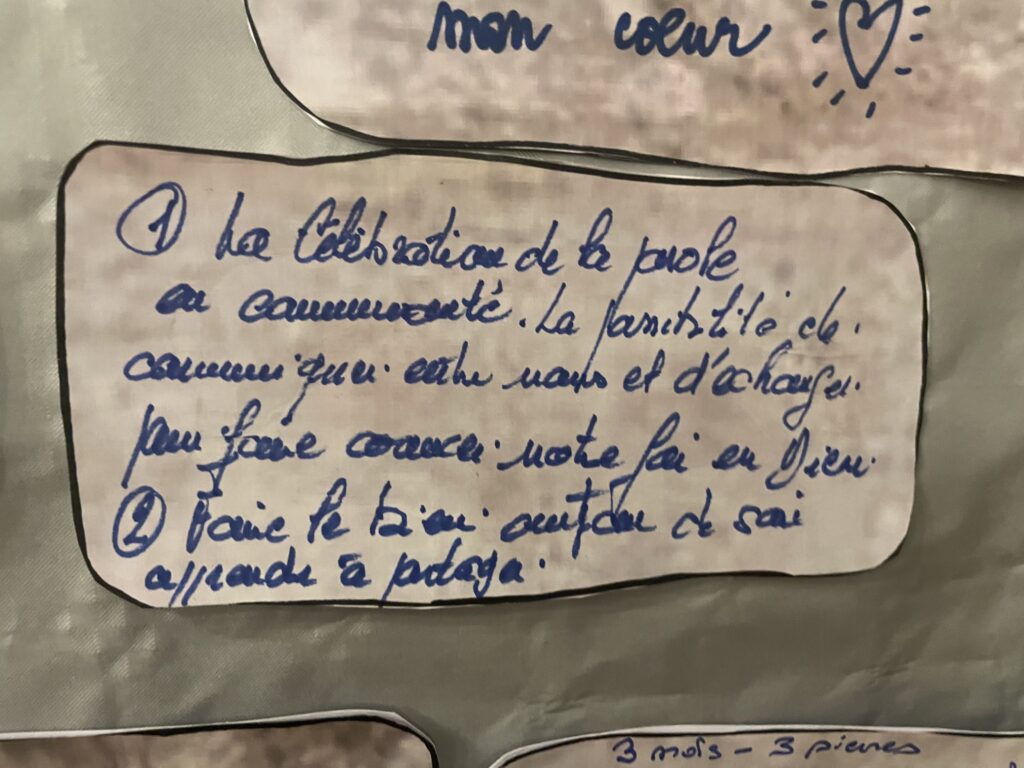 mon coeur
① La Célébration de la parole
en communauté. La possibilité de
communiquer entre nous et d'échanger
pour faire avancer notre foi en Dieu.
② Faire le bien autour de soi
apprendre à partager.
3 mots - 3 pierres